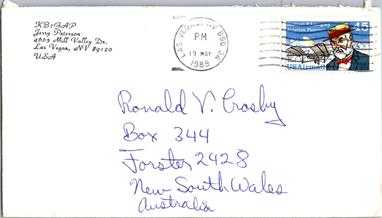 KB7GAP
Jerry Peterson
4603 Mill Valley Dr.
Las Vegas, NV 89120
USA
LAS VEGAS, NV 890
PM
19 MAY
1989
45
USAirmail
Ronald V. Crosby
Box 344
Forster 2428
New South Wales
Australia